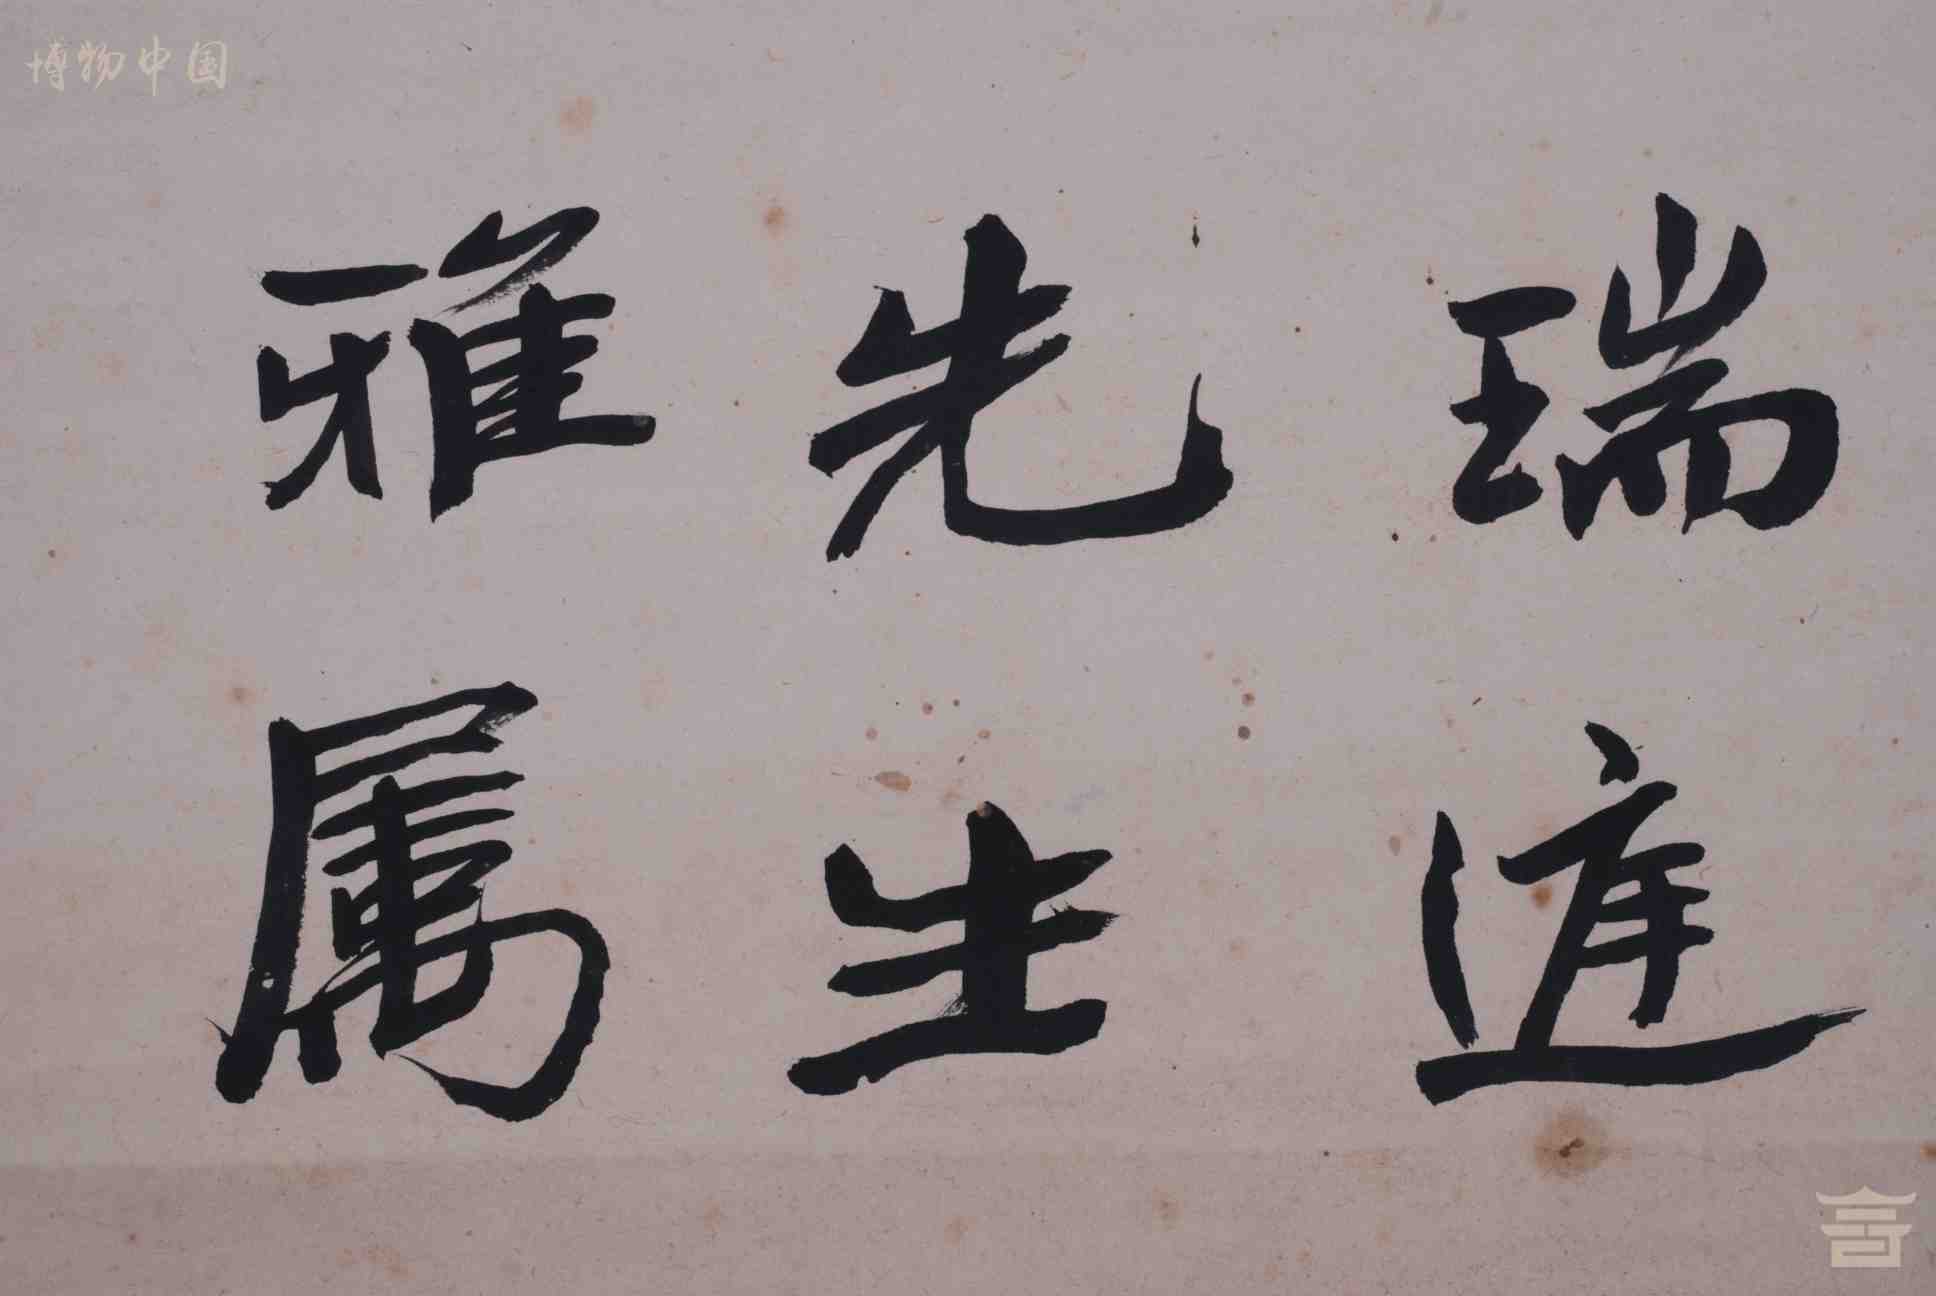 博物中国
瑞庭
先生
雅属